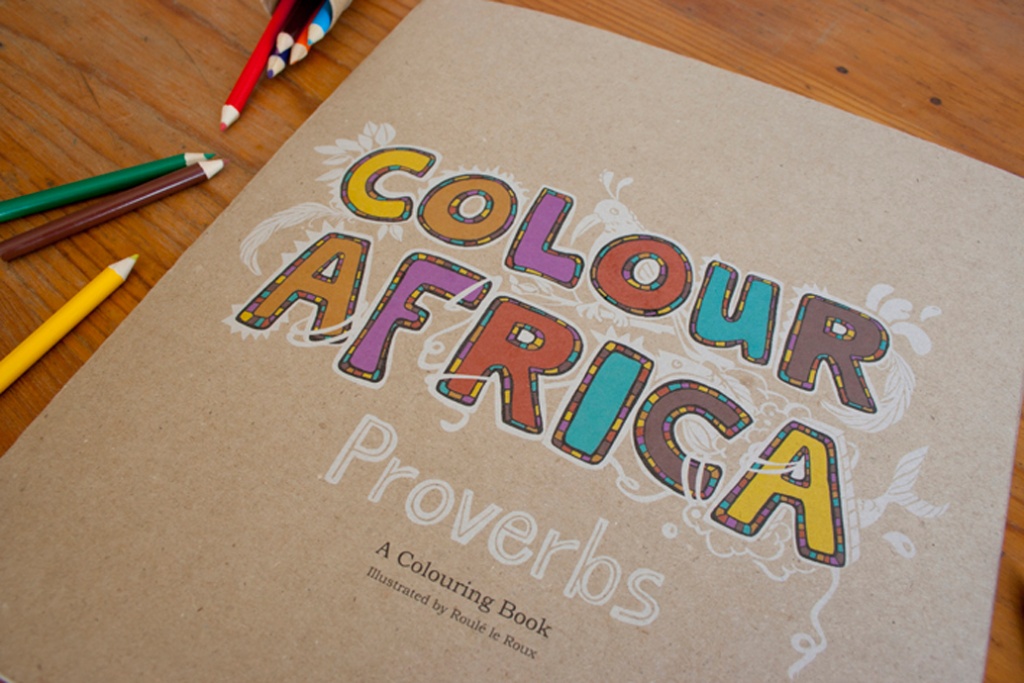 COLOUR
AFRICA
Proverbs
A Colouring Book
Illustrated by Roulé le Roux